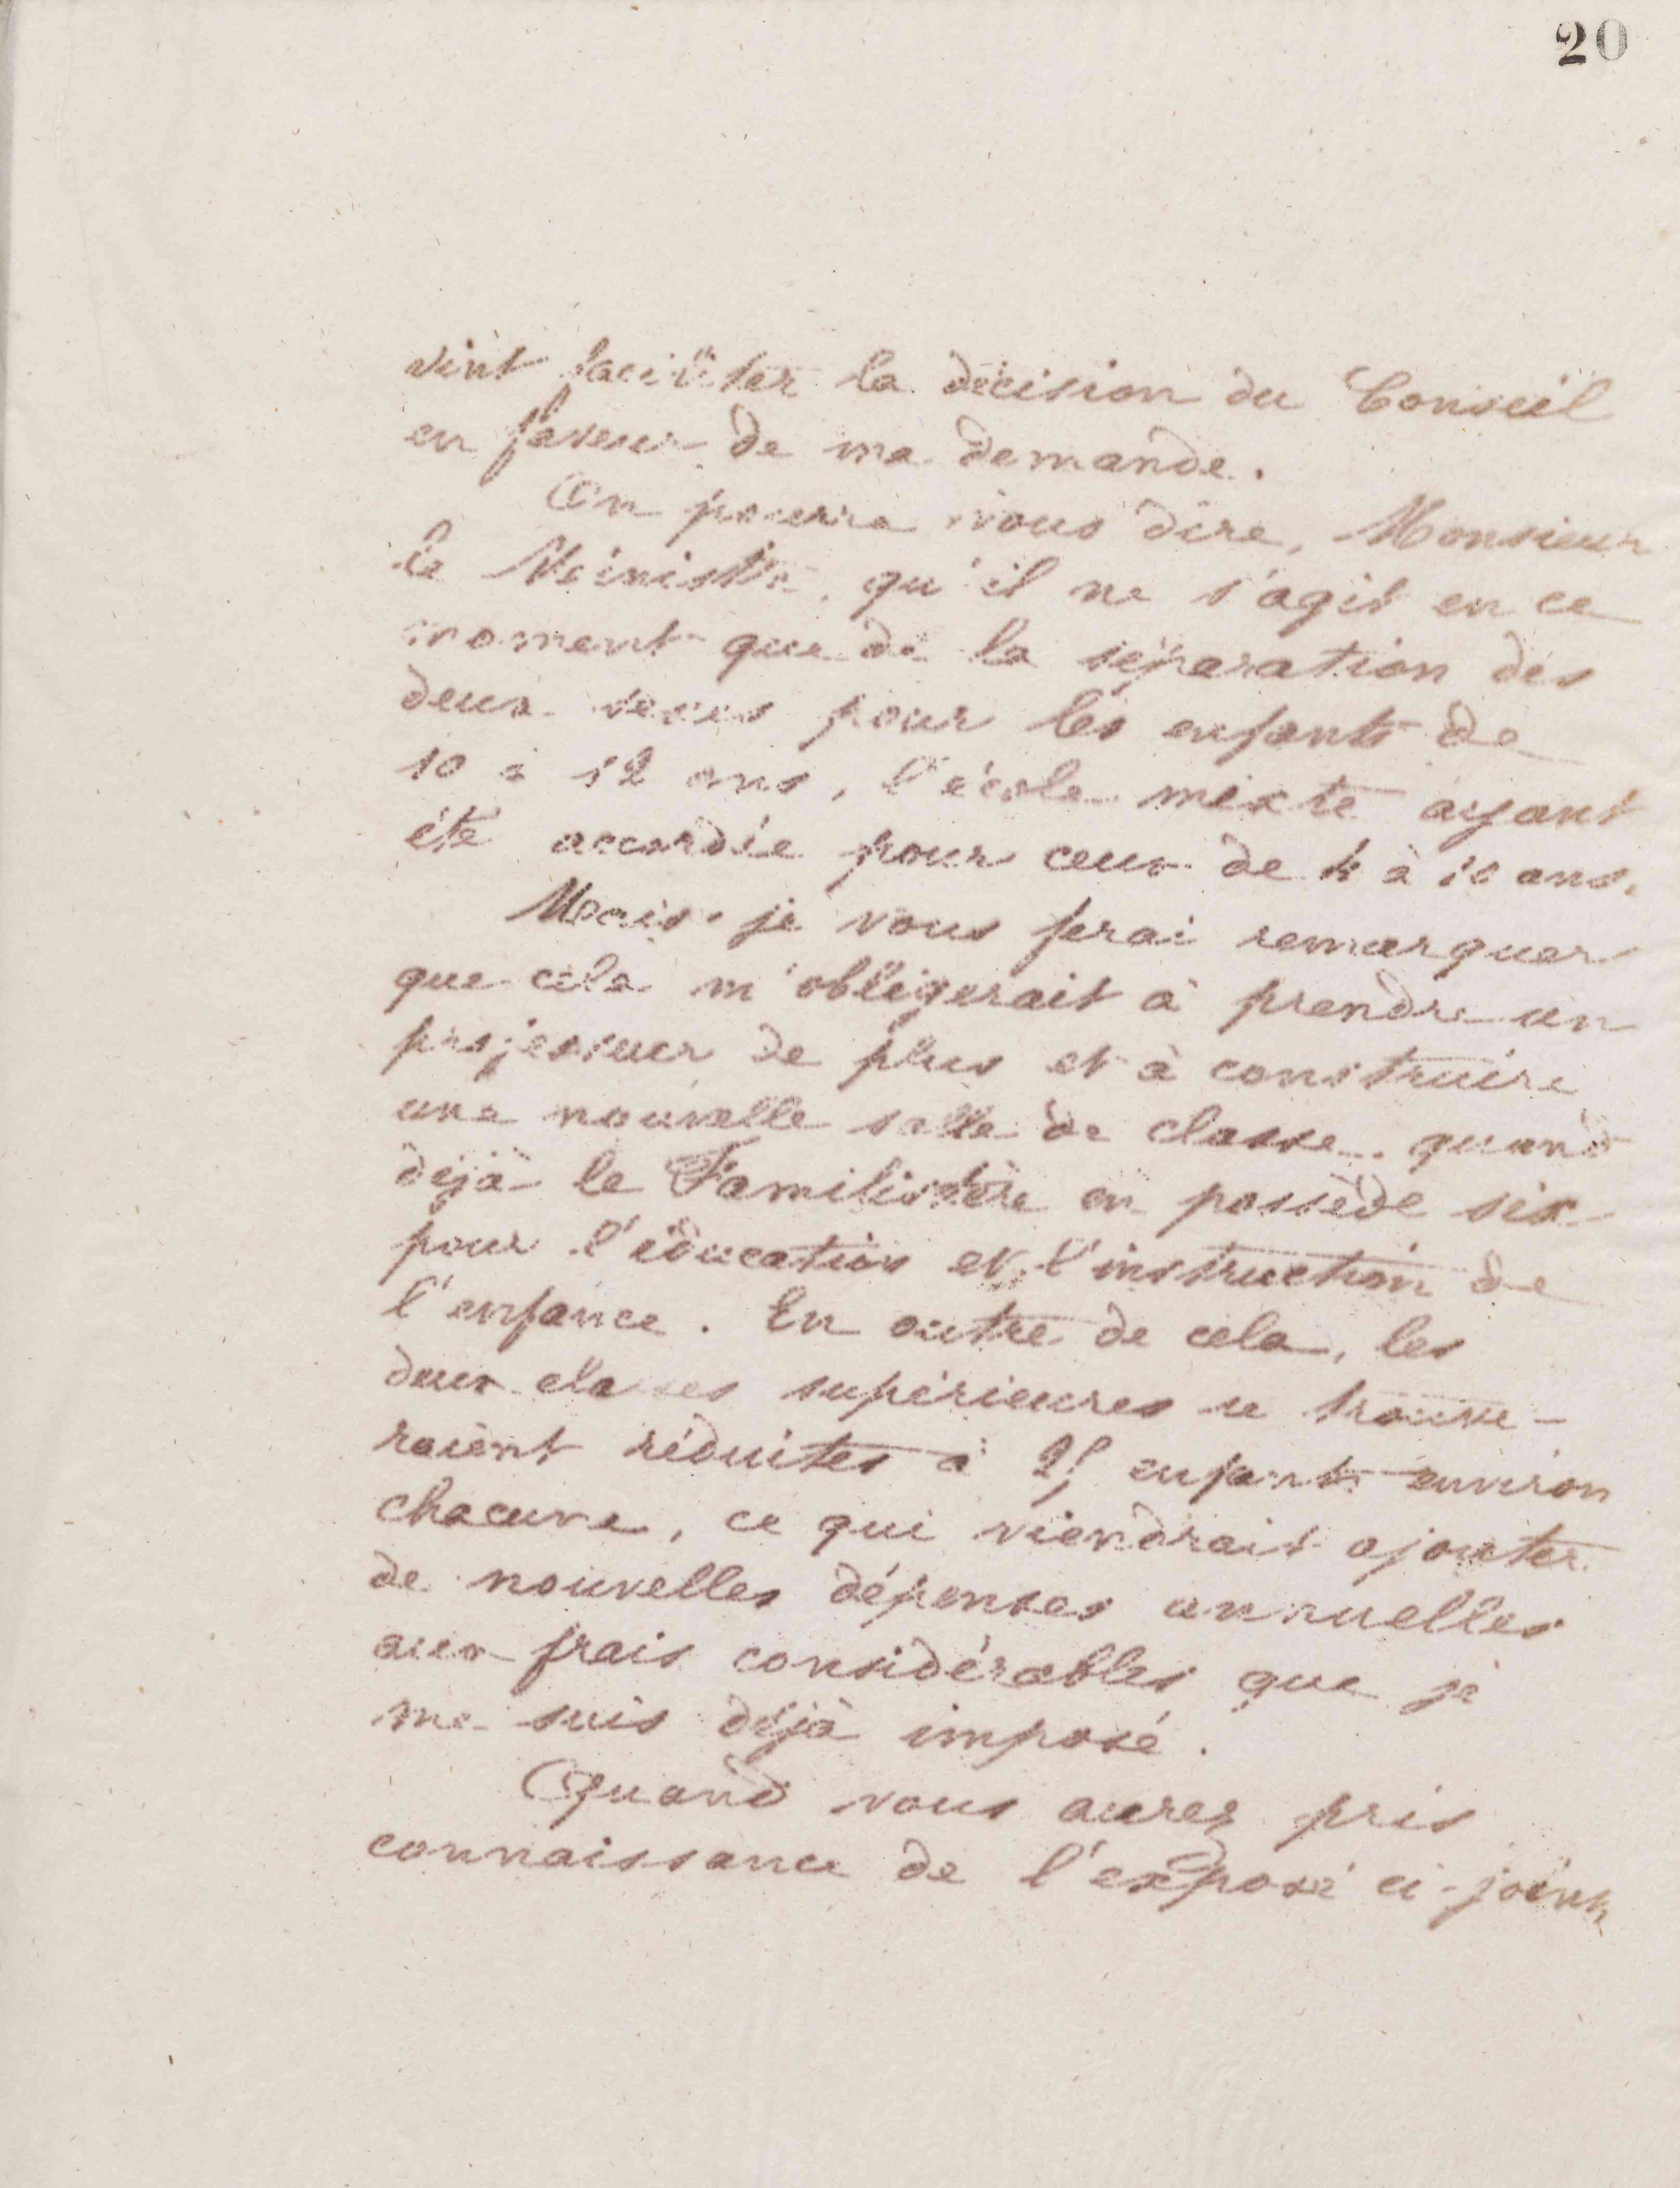 20
vint faciliter la décision du Conseil
en faveur de ma demande.
On pourra vous dire, Monsieur
le Ministre, qu'il ne s'agit en ce
moment que de la séparation des
deux sexes pour les enfants de
10 à 12 ans, l'école mixte ayant
été accordée pour ceux de 4 à 10 ans.
Mais je vous ferai remarquer
que cela m'obligerait à prendre un
professeur de plus et à construire
une nouvelle salle de classe quand
déjà le Familistère en possède six
pour l'éducation et l'instruction de
l'enfance. En outre de cela, les
deux classes supérieures se trouve-
raient réduites à 25 enfants environ
chacune, ce qui viendrait ajouter
de nouvelles dépenses annuelles
aux frais considérables que je
me suis déjà imposé.
Quand vous aurez pris
connaissance de l'exposé ci-joint,